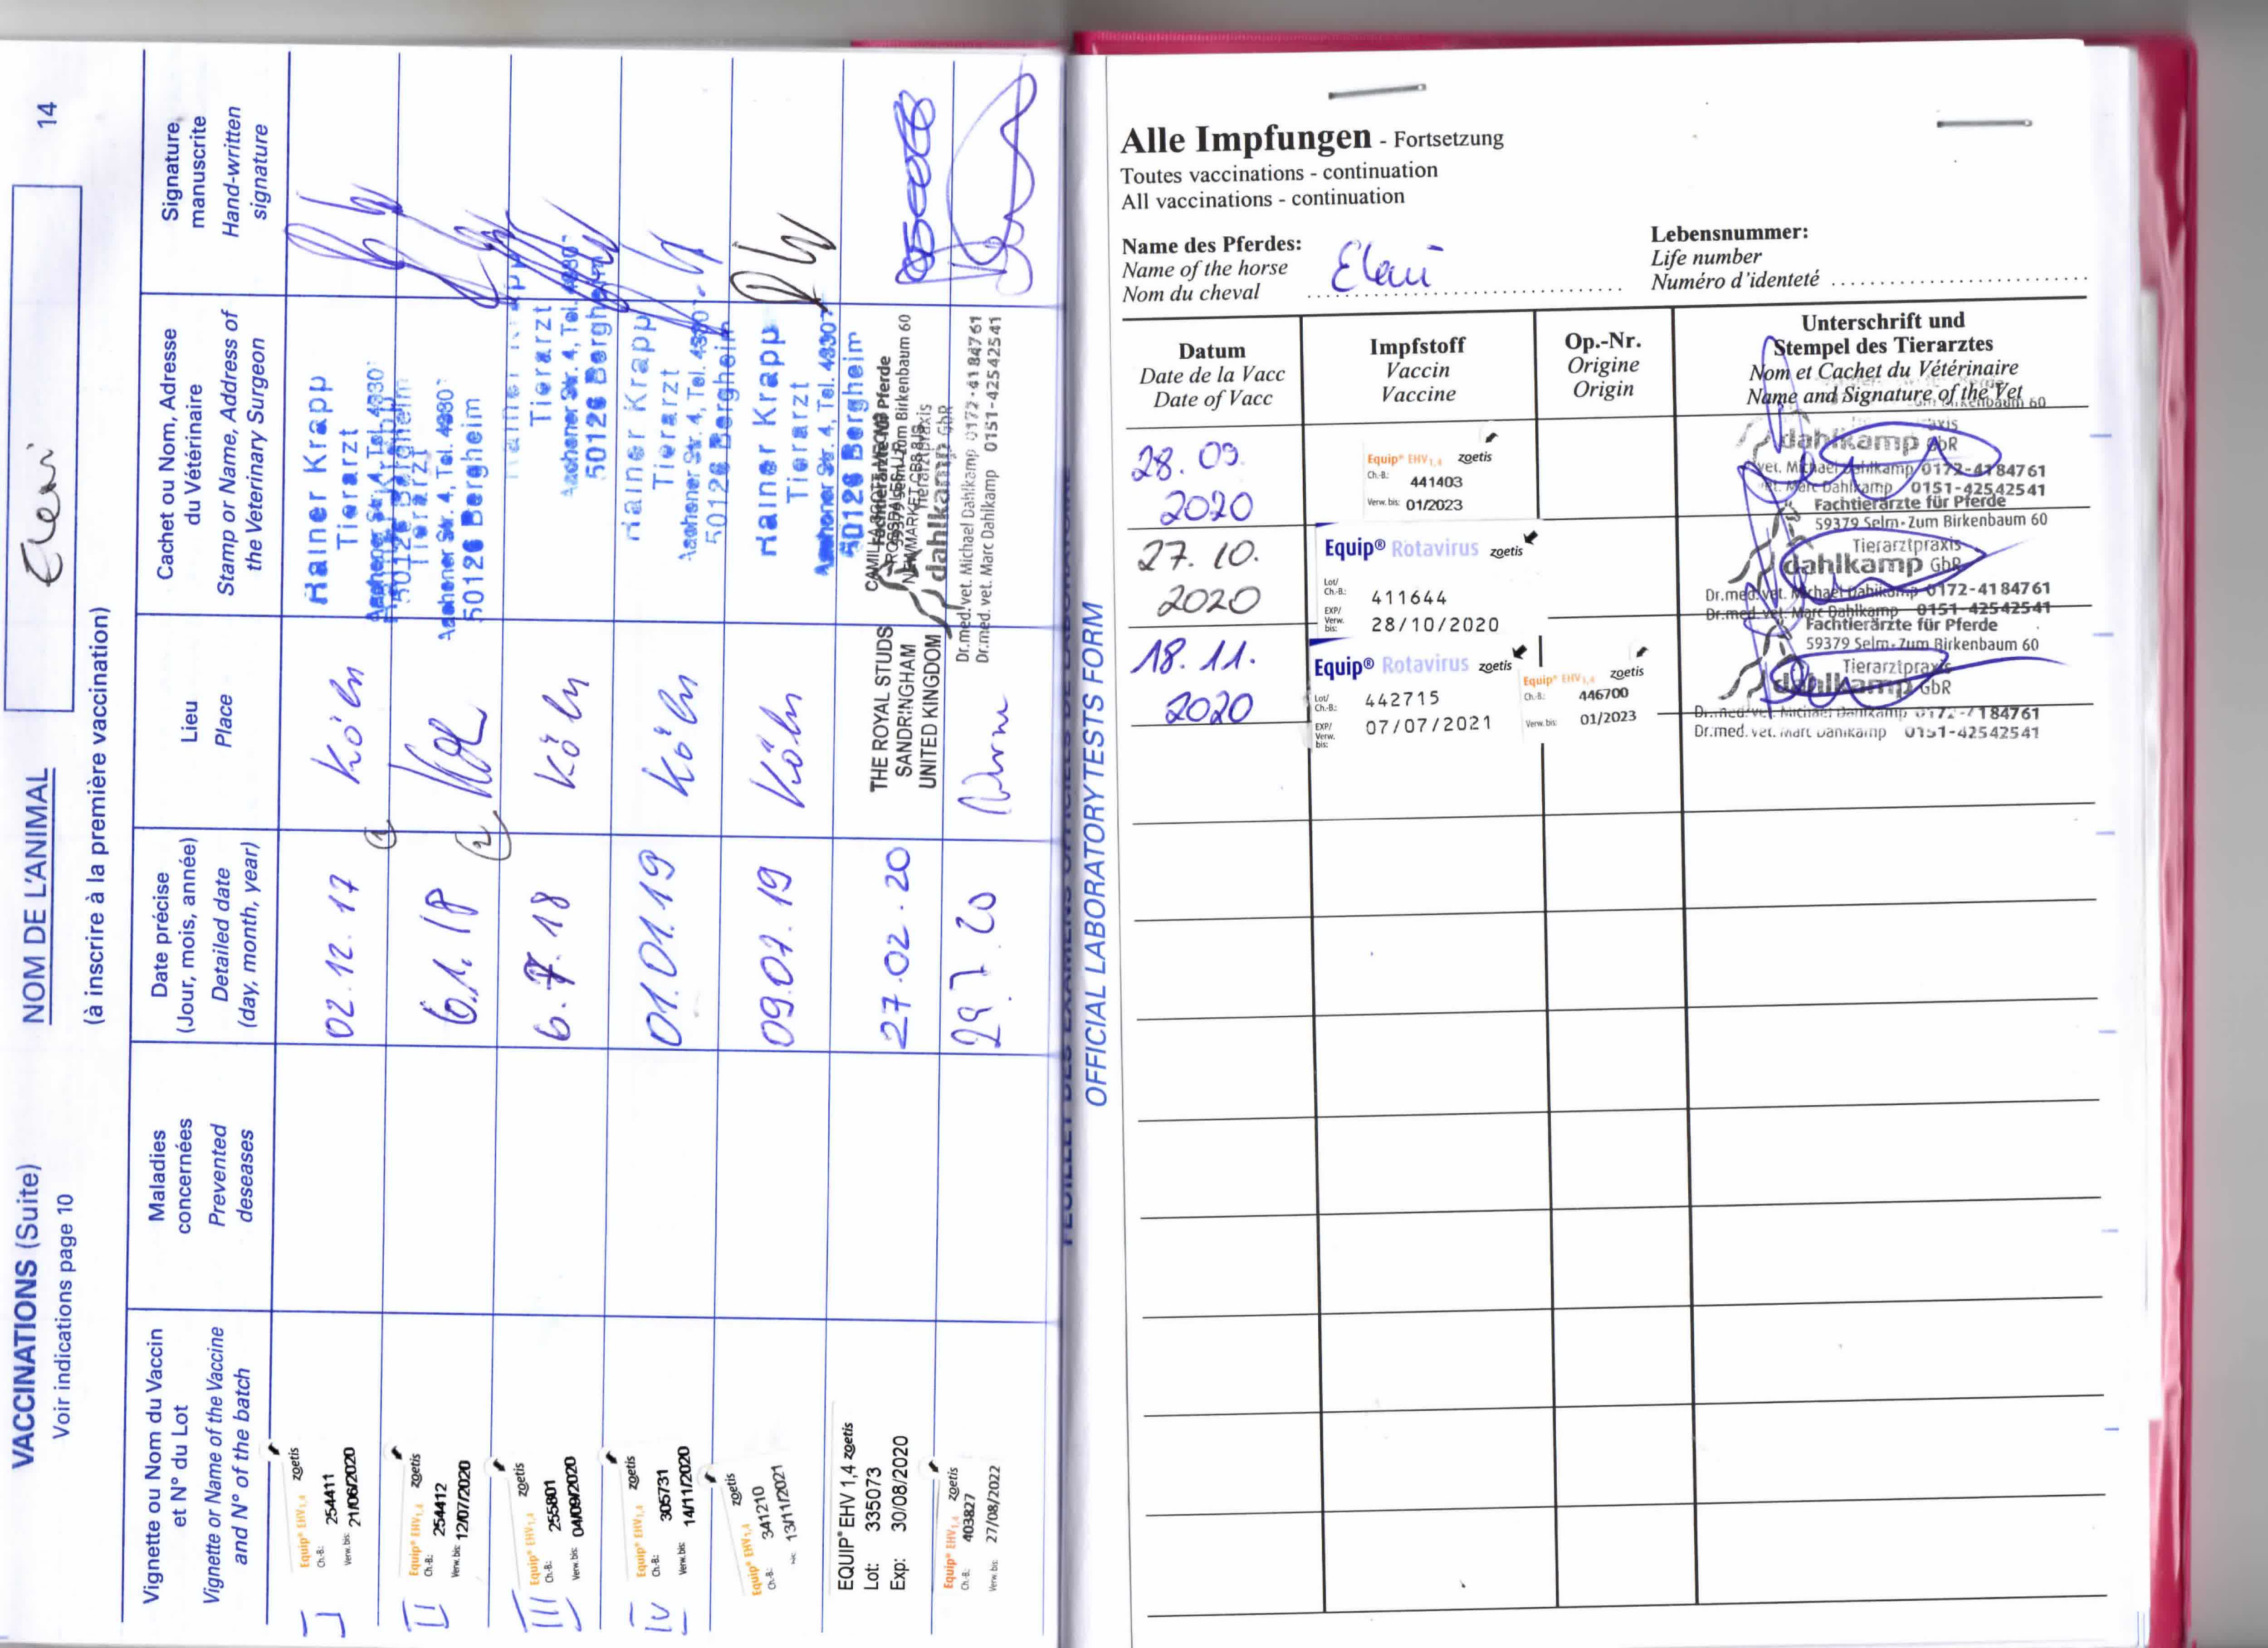 VACCINATIONS (Suite)
Voir indications page 10
NOM DE L'ANIMAL
(à inscrire à la première vaccination)
14
Vignette ou Nom du Vaccin
et N° du Lot
Vignette or Name of the Vaccine
and N° of the batch
Maladies
concernées
Prevented
deseases
Date précise
(Jour, mois, année)
Detailed date
(day, month, year)
Lieu
Place
Cachet ou Nom, Adresse
du Vétérinaire
Stamp or Name, Address of
the Veterinary Surgeon
Signature
manuscrite
Hand-written
signature
I
Equip® EHV1,4 zoetis
Ch.-B.: 254411
Verw. bis: 21/06/2020
02.12.17
Köln
Rainer Krapp
Tierarzt
Aachener Str. 4, Tel. 4330
II
Equip® EHV1,4 zoetis
Ch.-B.: 254412
Verw. bis: 12/07/2020
6.1.18
Tierarzt
Aachener Str. 4, Tel. 4330
50126 Bergheim
III
Equip® EHV1,4 zoetis
Ch.-B.: 255801
Verw. bis: 04/09/2020
6.7.18
Köln
Tierarzt
Aachener Str. 4, Tel. 4330
50126 Bergheim
IV
Equip® EHV1,4 zoetis
Ch.-B.: 305731
Verw. bis: 14/11/2020
01.01.19
Köln
Rainer Krapp
Tierarzt
Aachener Str. 4, Tel.
50126 Bergheim
Equip® EHV1,4 zoetis
Ch.-B.: 341210
13/11/2021
09.07.19
Köln
Rainer Krapp
Tierarzt
Aachener Str. 4, Tel. 4330
50126 Bergheim
EQUIP® EHV 1,4 zoetis
Lot: 335073
Exp: 30/08/2020
27.02.20
THE ROYAL STUDS
SANDRINGHAM
UNITED KINGDOM
Equip® EHV1,4 zoetis
Ch.-B.: 403827
Verw. bis: 27/08/2022
29.7.20
Fachtierärzte für Pferde
59379 Selm-Zum Birkenbaum 60
Tierarztpraxis
dahlkamp GbR
Dr.med.vet. Michael Dahlkamp 0172-4184761
Dr.med. vet. Marc Dahlkamp 0151-42542541
OFFICIAL LABORATORY TESTS FORM
Alle Impfungen - Fortsetzung
Toutes vaccinations - continuation
All vaccinations - continuation
Name des Pferdes:
Name of the horse
Nom du cheval
Lebensnummer:
Life number
Numéro d'identeté
Datum
Date de la Vacc
Date of Vacc
Impfstoff
Vaccin
Vaccine
Op.-Nr.
Origine
Origin
Unterschrift und
Stempel des Tierarztes
Nom et Cachet du Vétérinaire
Name and Signature of the Vet
28.09.
2020
Equip® EHV1,4 zoetis
Ch.-B.: 441403
Verw. bis: 01/2023
dahlkamp GbR
vet. Michael Dahlkamp 0172-4184761
Marc Dahlkamp 0151-42542541
27.10.
2020
Equip® Rotavirus zoetis
Lot/
Ch.-B.: 411644
EXP/
Verw.
bis: 28/10/2020
Fachtierärzte für Pferde
59379 Selm-Zum Birkenbaum 60
Tierarztpraxis
dahlkamp GbR
Dr.med.vet. Michael Dahlkamp 0172-4184761
Dr.med.vet. Marc Dahlkamp 0151-42542541
18.11.
2020
Equip® Rotavirus zoetis
Lot/
Ch.-B.: 442715
EXP/
Verw.
bis: 07/07/2021
Equip® EHV1,4 zoetis
Ch.-B.: 446700
Verw. bis: 01/2023
Fachtierärzte für Pferde
59379 Selm-Zum Birkenbaum 60
Tierarztpraxis
dahlkamp GbR
Dr.med.vet. Michael Dahlkamp 0172-4184761
Dr.med. vet. Marc Dahlkamp 0151-42542541